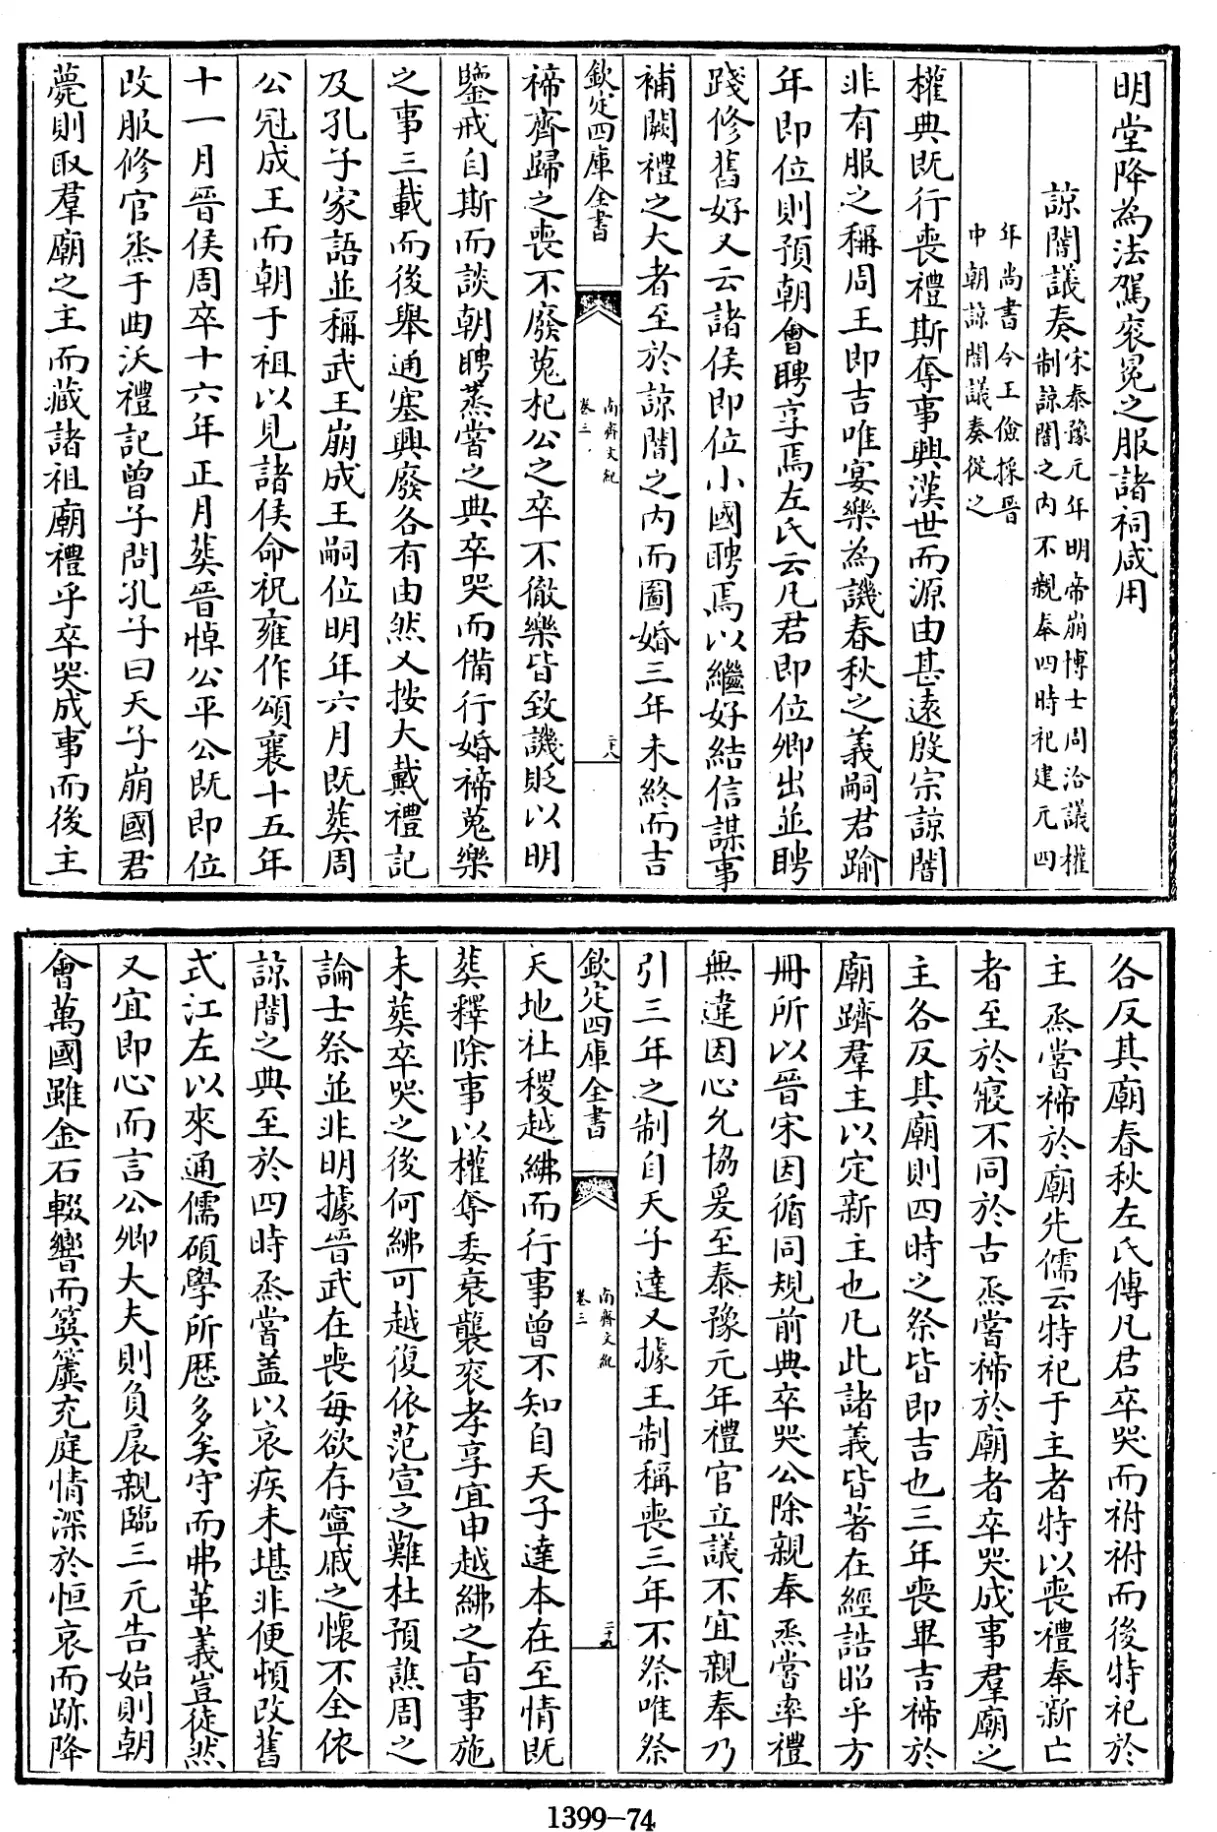 明堂降為法駕衮冕之服諸祠咸用
諒闇議奏宋泰豫元年明帝崩博士周洽議權
制諒闇之内不親奉四時祀建元四
年尚書令王儉採晉
中朝諒闇議奏從之
權典既行喪禮斯奪事興漢世而源由甚遠殷宗諒闇
非有服之稱周王即吉唯宴樂為譏春秋之義嗣君踰
年即位則預朝會聘享焉左氏云凡君即位卿出並聘
踐修舊好又云諸侯即位小國聘焉以繼好結信謀事
補闕禮之大者至於諒闇之内而圖婚三年未終而吉
欽定四庫全書
南齊文紀
卷三
二十八
禘齊歸之喪不廢蒐杞公之卒不徹樂皆致譏貶以明
鑒戒自斯而談朝聘蒸嘗之典卒哭而備行婚禘蒐樂
之事三載而後舉通塞興廢各有由然又按大戴禮記
及孔子家語並稱武王崩成王嗣位明年六月既葬周
公冠成王而朝于祖以見諸侯命祝雍作頌襄十五年
十一月晉侯周卒十六年正月葬晉悼公平公既即位
改服修官烝于曲沃禮記曾子問孔子曰天子崩國君
薨則取羣廟之主而藏諸祖廟禮乎卒哭成事而後主
各反其廟春秋左氏傳凡君卒哭而祔祔而後特祀於
主烝嘗禘於廟先儒云特祀于主者特以喪禮奉新亡
者至於寢不同於古烝嘗禘於廟者卒哭成事羣廟之
主各反其廟則四時之祭皆即吉也三年喪畢吉禘於
廟躋羣主以定新主也凡此諸義皆著在經誥昭乎方
冊所以晉宋因循同規前典卒哭公除親奉烝嘗率禮
無違因心允協爰至泰豫元年禮官立議不宜親奉乃
引三年之制自天子達又據王制稱喪三年不祭唯祭
欽定四庫全書
南齊文紀
卷三
二十九
天地社稷越紼而行事曾不知自天子達本在至情既
葬釋除事以權奪委衰襲衮孝享宜申越紼之旨事施
未葬卒哭之後何紼可越復依范宣之難杜預譙周之
論士祭並非明據晉武在喪每欲存寧戚之懷不全依
諒闇之典至於四時烝嘗盖以哀疾未堪非便頓改舊
式江左以來通儒碩學所歷多矣守而弗革義豈徒然
又宜即心而言公卿大夫則負扆親臨三元告始則朝
會萬國雖金石輟響而簨簴充庭情深於恒哀而跡降
1399-74